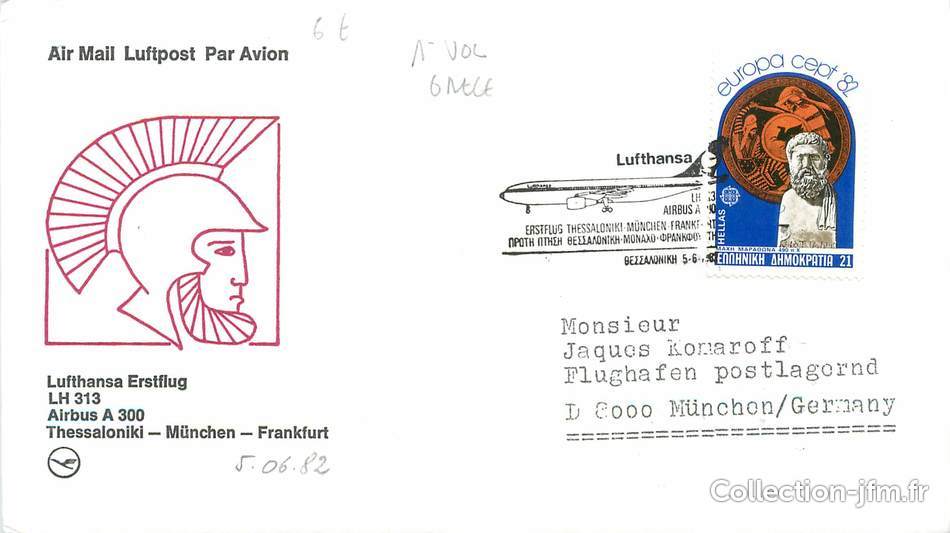 6 €
Air Mail Luftpost Par Avion
1er VOL
GRECE
europa cept '82
Lufthansa
Lufthansa
LH 313
AIRBUS A 300
ERSTFLUG THESSALONIKI-MÜNCHEN-FRANKFURT
ΠΡΩΤΗ ΠΤΗΣΗ ΘΕΣΣΑΛΟΝΙΚΗ-ΜΟΝΑΧΟ-ΦΡΑΝΚΦΟΥΡΤΗ
ΘΕΣΣΑΛΟΝΙΚΗ 5-6-1982
HELLAS
ΜΑΧΗ ΜΑΡΑΘΩΝΑ 490 π.Χ
ΕΛΛΗΝΙΚΗ ΔΗΜΟΚΡΑΤΙΑ 21
Monsieur
Jaques Komaroff
Flughafen postlagernd
D 8000 München/Germany
Lufthansa Erstflug
LH 313
Airbus A 300
Thessaloniki – München – Frankfurt
5.06.82
Collection-jfm.fr